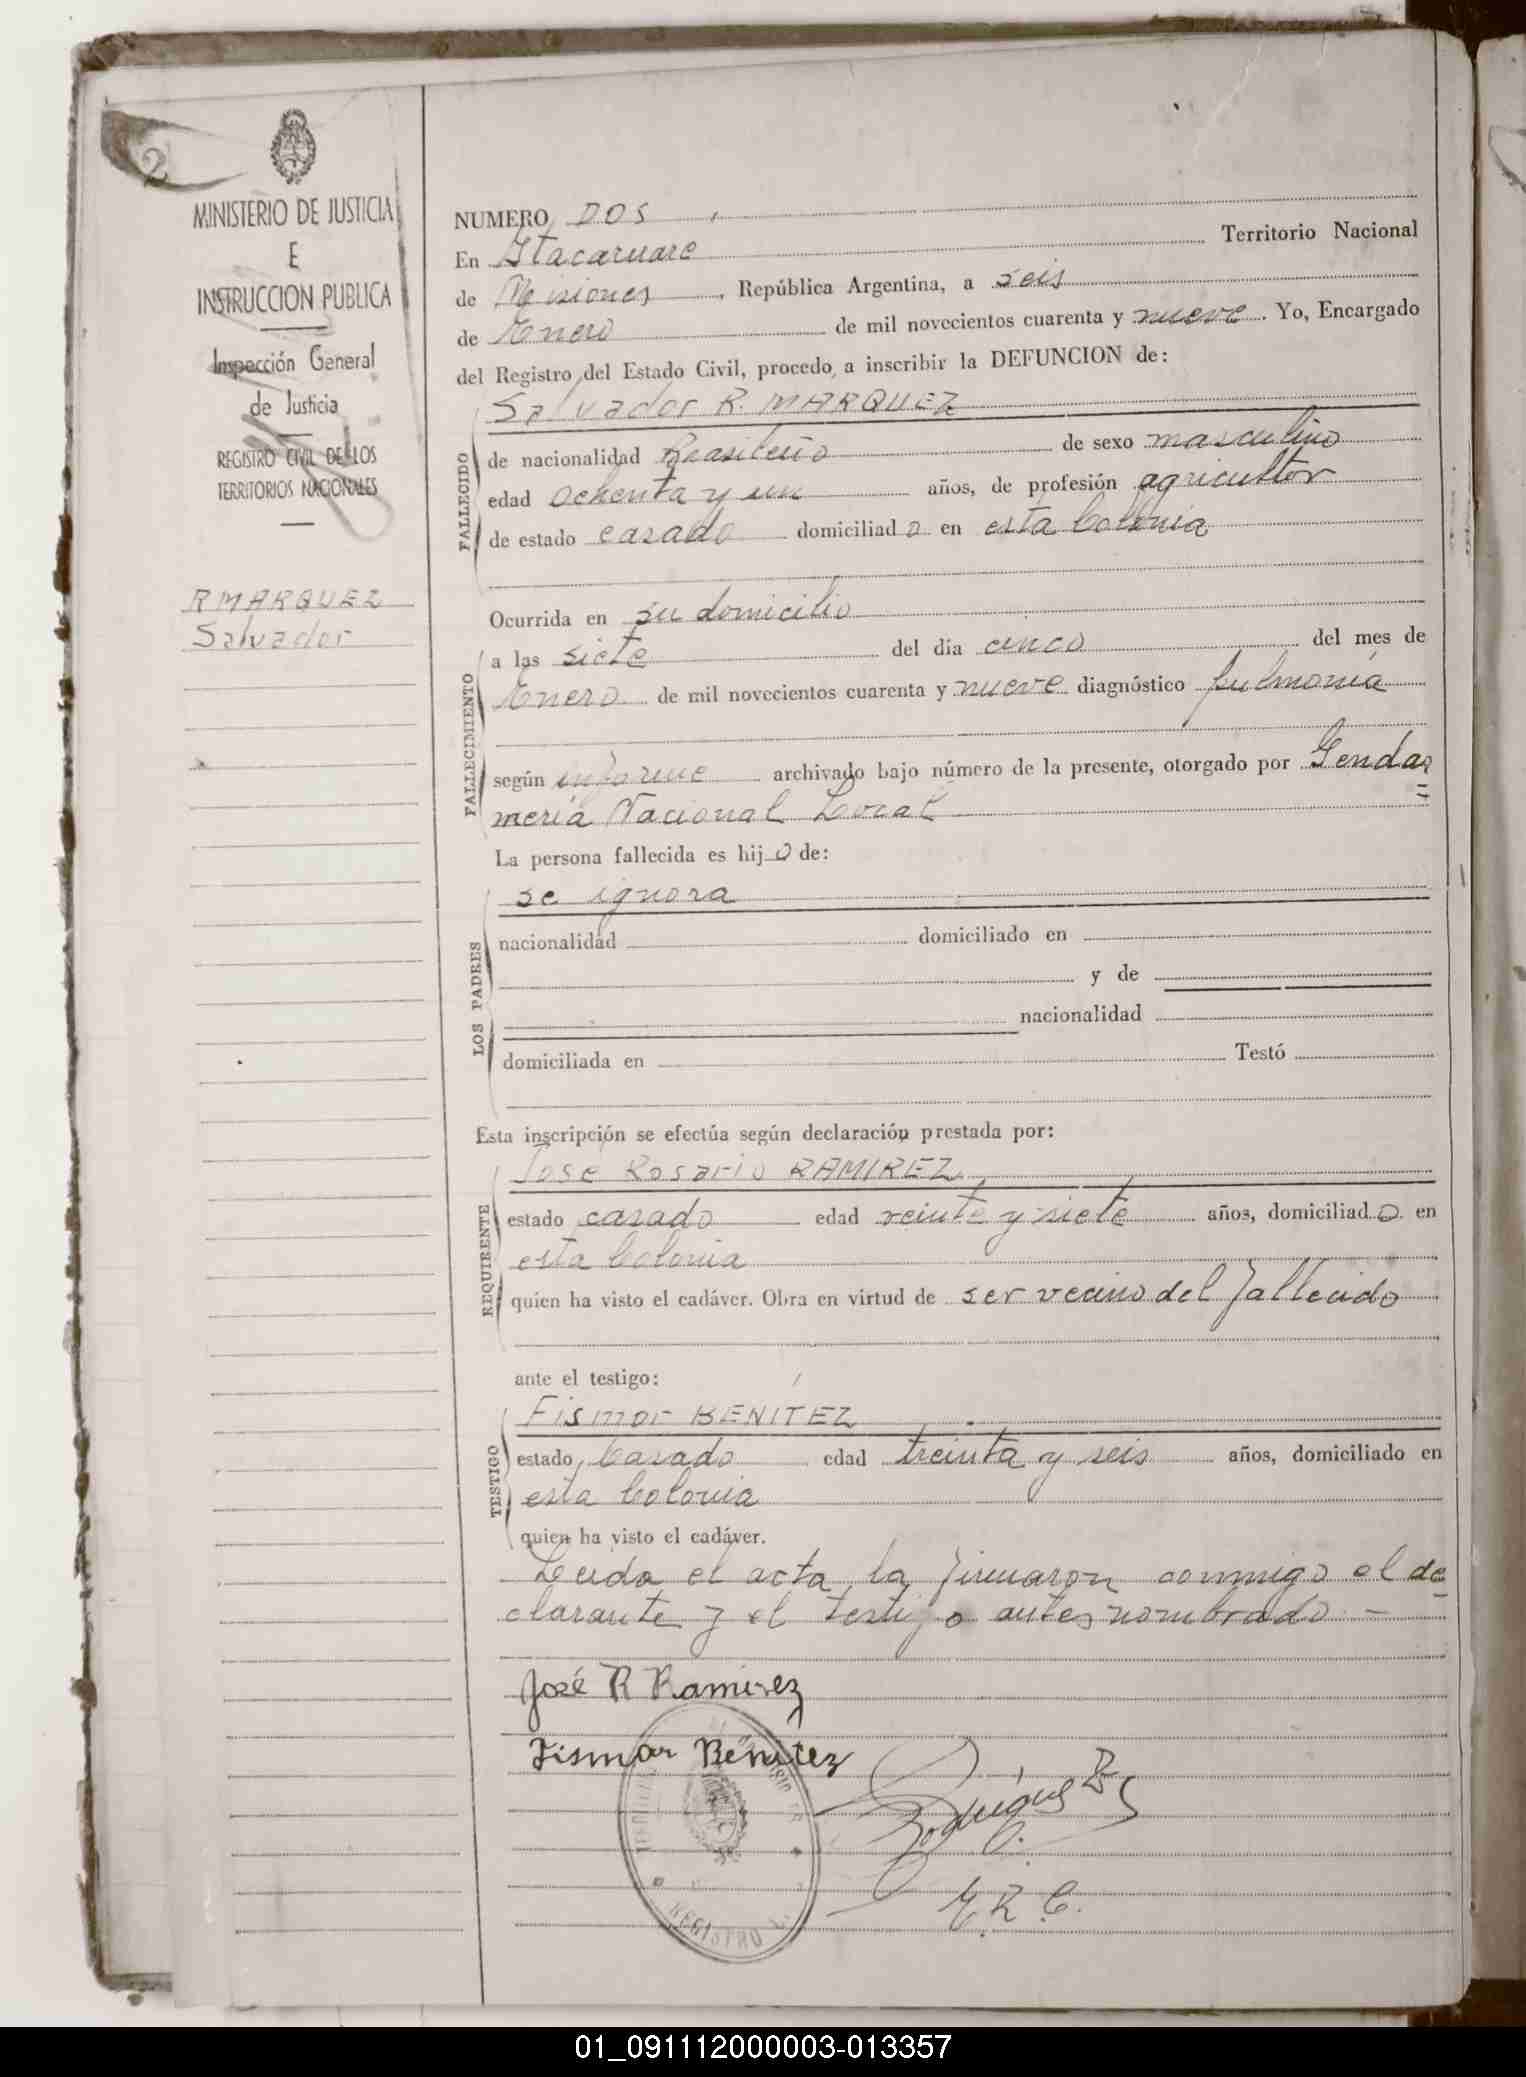 2
MINISTERIO DE JUSTICIA
E
INSTRUCCION PUBLICA
Inspección General
de Justicia
REGISTRO CIVIL DE LOS
TERRITORIOS NACIONALES
R MARQUEZ
Salvador
NUMERO DOS
En Itacaruare Territorio Nacional
de Misiones, República Argentina, a seis
de Enero de mil novecientos cuarenta y nueve. Yo, Encargado
del Registro del Estado Civil, procedo a inscribir la DEFUNCION de:
Salvador R. MARQUEZ
FALLECIDO
de nacionalidad Brasileño de sexo masculino
edad ochenta y un años, de profesión agricultor
de estado casado domiciliado en esta Colonia
Ocurrida en su domicilio
FALLECIMIENTO
a las siete del día cinco del mes de
Enero de mil novecientos cuarenta y nueve diagnóstico pulmonía
según informe archivado bajo número de la presente, otorgado por Gendar
=
mería Nacional Local
La persona fallecida es hijo de:
se ignora
LOS PADRES
nacionalidad domiciliado en
y de
nacionalidad
domiciliada en Testó
Esta inscripción se efectúa según declaración prestada por:
José Rosario RAMIREZ
REQUIRENTE
estado casado edad veinte y siete años, domiciliado en
esta Colonia
quien ha visto el cadáver. Obra en virtud de ser vecino del fallecido
ante el testigo:
Fismar BENITEZ
TESTIGO
estado Casado edad treinta y seis años, domiciliado en
esta Colonia
quien ha visto el cadáver.
Leida el acta, la firmaron conmigo el de
clarante y el testigo antes nombrado -
José R Ramirez
Fismar Bénitez
REGISTRO
E. R. C.
01_091112000003-013357